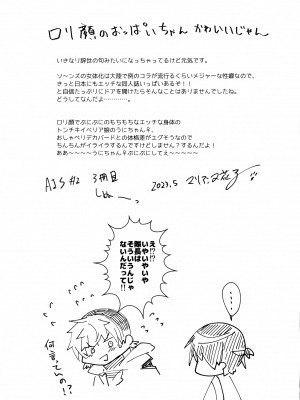 ロリ顔のおっぱいちゃん かわいいじゃん
いきなり辞世の句みたいになっちゃってるけど元気です。
ソーンズの女体化は大陸で病のコラが流行るくらいメジャーな性癖なので、
きっと日本にもエッチな同人誌いっぱいあるぞ!!
と自信たっぷりにドアを開けたらそんなことはありませんでしたね。
どうしてなんだよ…。
ロリ顔でぷにぷにのもちもちなエッチな身体の
トンチキイベリア娘のうにちゃん♀。
おしゃべりデカバードとの体格差がエグそうなので
ちんちんがイライラするんですけどどしません?するんだよ!
ああ~~~~うにちゃん♀ぷにぷにして~~~~~
AJS #2 3冊目
2023.5
え!?!?
いやいやいや
隊長は
そういうんじゃ
ないんだって!!
何言ってんの!?
····